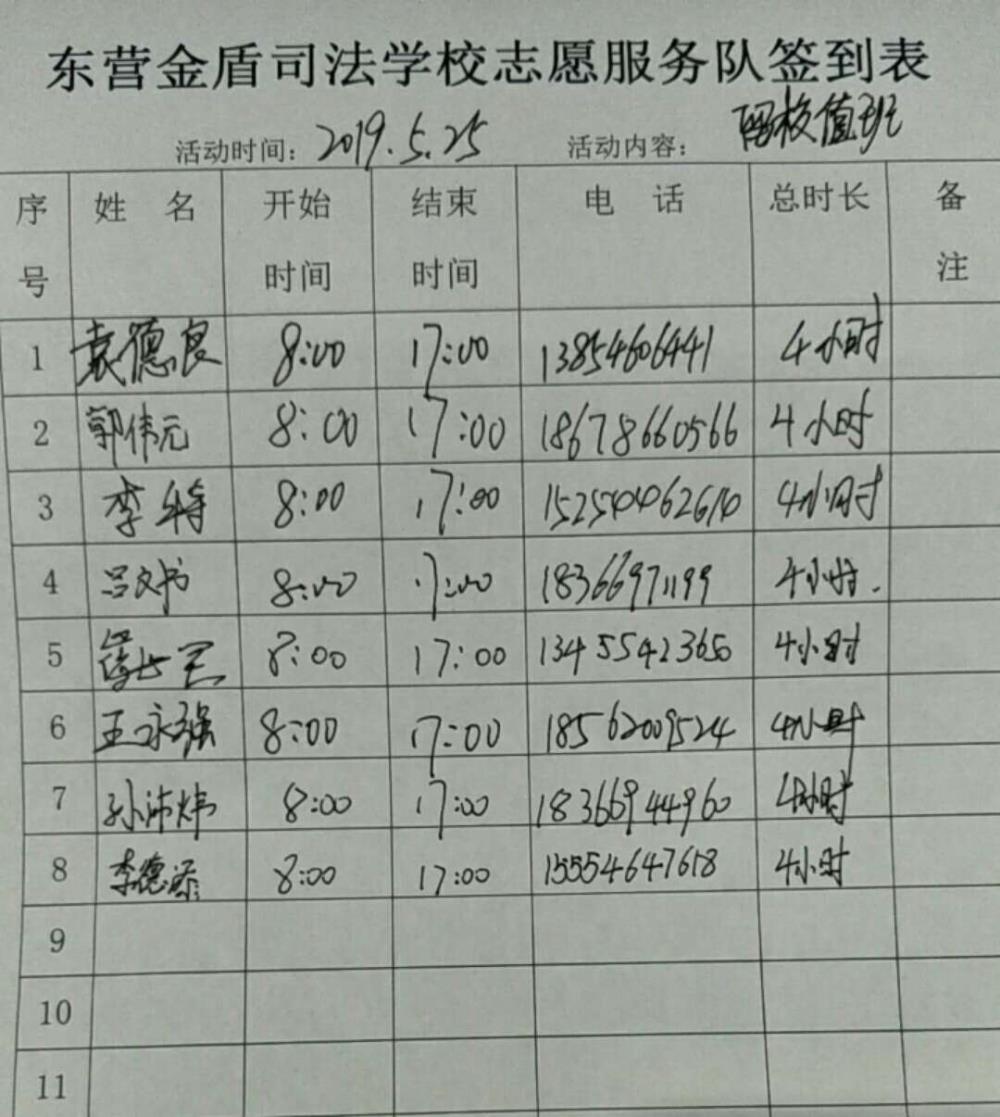 东营金盾司法学校志愿服务队签到表
活动时间: 2019.5.25 活动内容: 留校值班
序号 姓 名 开始时间 结束时间 电 话 总时长 备注
1 袁德良 8:00 17:00 13854606441 4小时
2 郭伟元 8:00 17:00 18678660566 4小时
3 李特 8:00 17:00 4小时
4 吕文书 8:00 17:00 18366971199 4小时.
5 8:00 17:00 13455423650 4小时
6 王永强 8:00 17:00 18562009524 4小时
7 孙沛炜 8:00 17:00 18366944960 4小时
8 李德添 8:00 17:00 15554647618 4小时
9
10
11